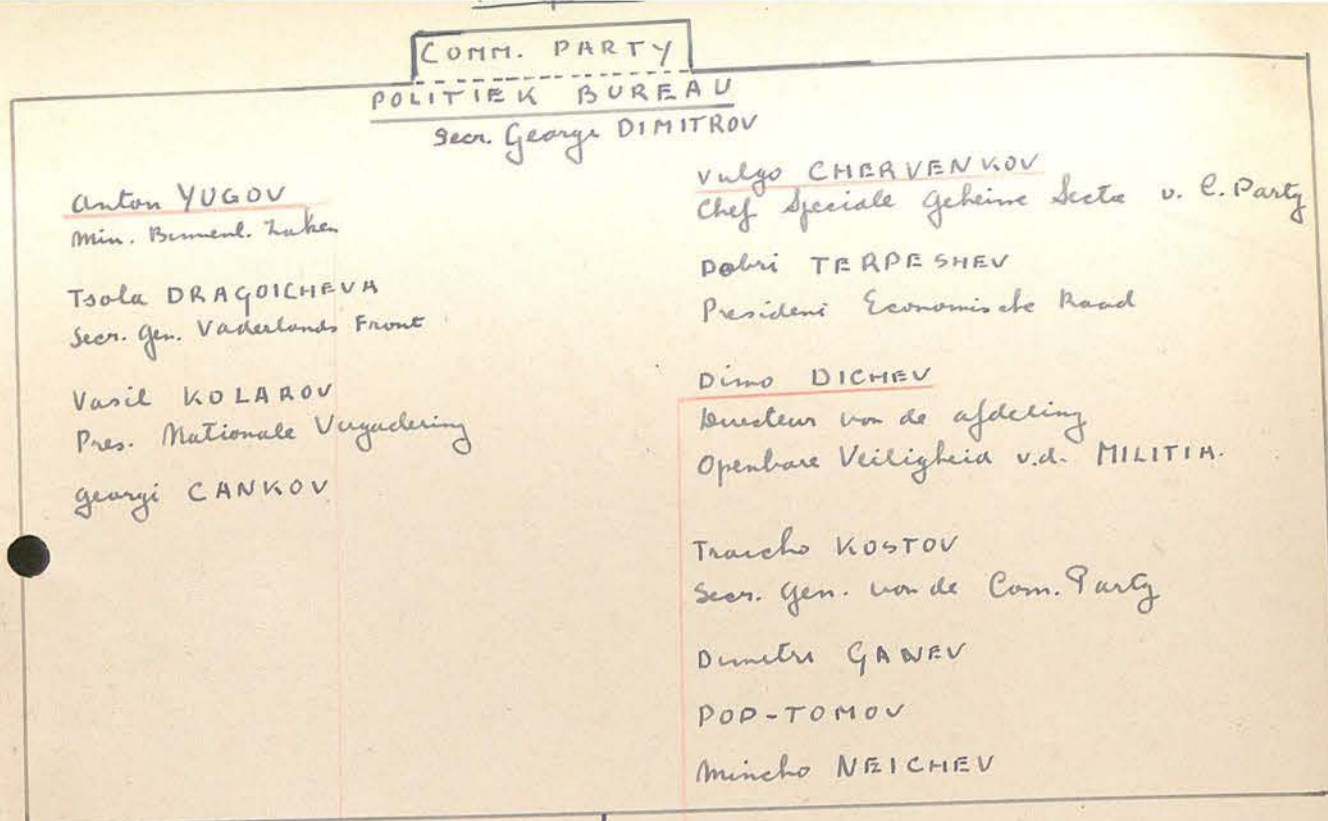 COMM. PARTY
POLITIEK BUREAU
Secr. George DIMITROV
Anton YUGOV
Min. Binnenl. Zaken
Tsola DRAGOICHEVA
Secr. Gen. Vaderlands Front
Vasil KOLAROV
Pres. Nationale Vergadering
Georgi CANKOV
Vulgo CHERVENKOV
Chef Speciale Geheime Sectie v. C. Party
Dobri TERPESHEV
President Economische Raad
Dimo DICHEV
Directeur van de afdeling
Openbare Veiligheid v.d. MILITIA.
Traicho KOSTOV
Secr. Gen. van de Com. Party
Dimitri GANEV
POP-TOMOV
Mincho NEICHEV